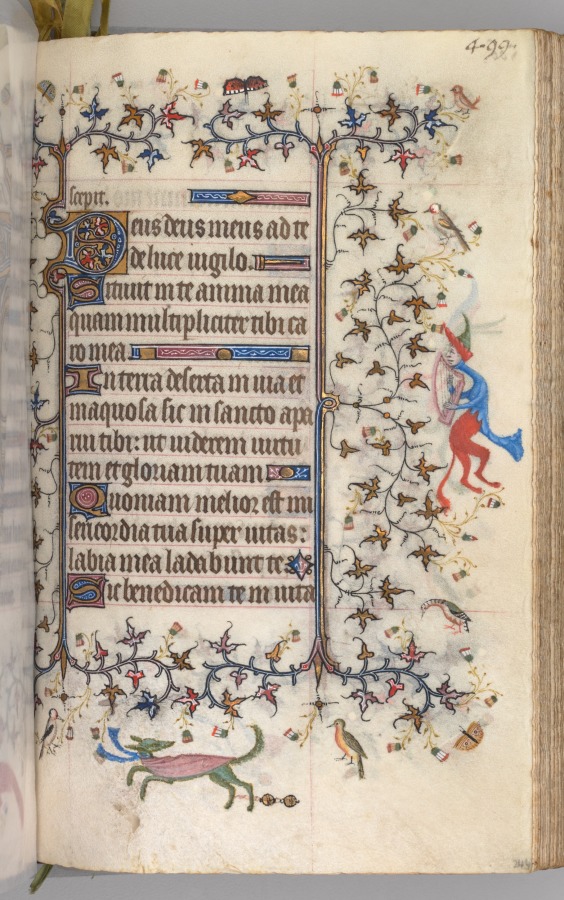 499
scepit.
Deus deus meus ad te
de luce uigilo.
Sitiuit in te anima mea
quam multipliciter tibi ca
ro mea
In terra deserta in uia et
inaquosa sic in sancto apa
rui tibi: ut uiderem uirtu
tem et gloriam tuam
Quoniam melior est mi
sericordia tua super uitas:
labia mea laudabunt te
Sic benedicam te in uita